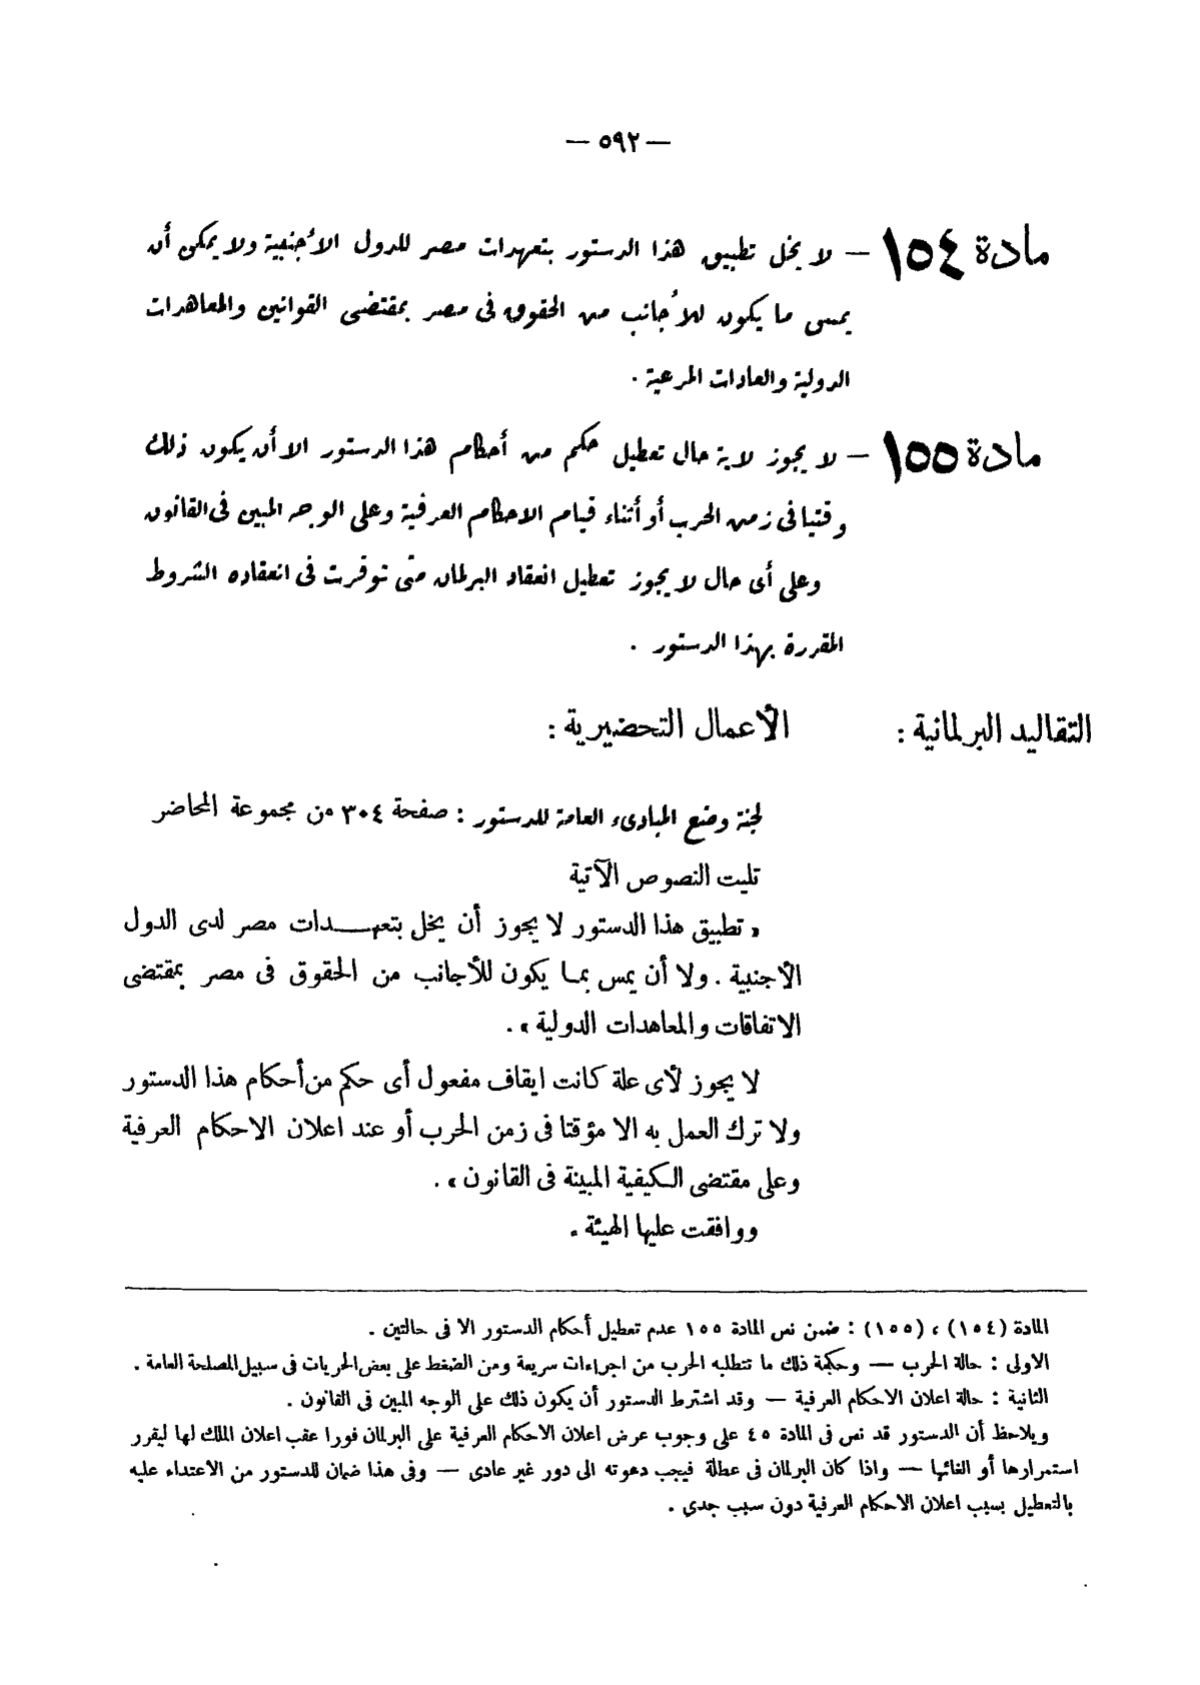 — ٥٩٢ —
مادة ١٥٤ — لا يخل تطبيق هذا الدستور بتعهدات مصر للدول الأجنبية ولا يمكن أن
يمس ما يكون للأجانب من الحقوق فى مصر بمقتضى القوانين والمعاهدات
الدولية والعادات المرعية .
مادة ١٥٥ — لا يجوز لاية حال تعطيل حكم من أحكام هذا الدستور الا أن يكون ذلك
وقتيا فى زمن الحرب أو أثناء قيام الاحكام العرفية وعلى الوجه المبين فى القانون
وعلى أى حال لا يجوز تعطيل انعقاد البرلمان متى توفرت فى انعقاده الشروط
المقررة بهذا الدستور .
التقاليد البرلمانية : الأعمال التحضيرية :
لجنة وضع المبادىء العامة للدستور : صفحة ٣٠٤ من مجموعة المحاضر
تليت النصوص الآتية
« تطبيق هذا الدستور لا يجوز أن يخل بتعهـــدات مصر لدى الدول
الأجنبية . ولا أن يمس بما يكون للأجانب من الحقوق فى مصر بمقتضى
الاتفاقات والمعاهدات الدولية » .
لا يجوز لأى علة كانت ايقاف مفعول أى حكم من أحكام هذا الدستور
ولا ترك العمل به الا مؤقتا فى زمن الحرب أو عند اعلان الاحكام العرفية
وعلى مقتضى الكيفية المبينة فى القانون » .
ووافقت عليها الهيئة .
المادة (١٥٤) ، (١٥٥) : ضمن نص المادة ١٥٥ عدم تعطيل أحكام الدستور الا فى حالتين .
الاولى : حالة الحرب — وحكمة ذلك ما تتطلبه الحرب من اجراءات سريعة ومن الضغط على بعض الحريات فى سبيل المصلحة العامة .
الثانية : حالة اعلان الاحكام العرفية — وقد اشترط الدستور أن يكون ذلك على الوجه المبين فى القانون .
ويلاحظ أن الدستور قد نص فى المادة ٤٥ على وجوب عرض اعلان الاحكام العرفية على البرلمان فورا عقب اعلان الملك لها ليقرر
استمرارها أو الغائها — واذا كان البرلمان فى عطلة فيجب دعوته الى دور غير عادى — وفى هذا ضمان للدستور من الاعتداء عليه
بالتعطيل بسبب اعلان الاحكام العرفية دون سبب جدى .